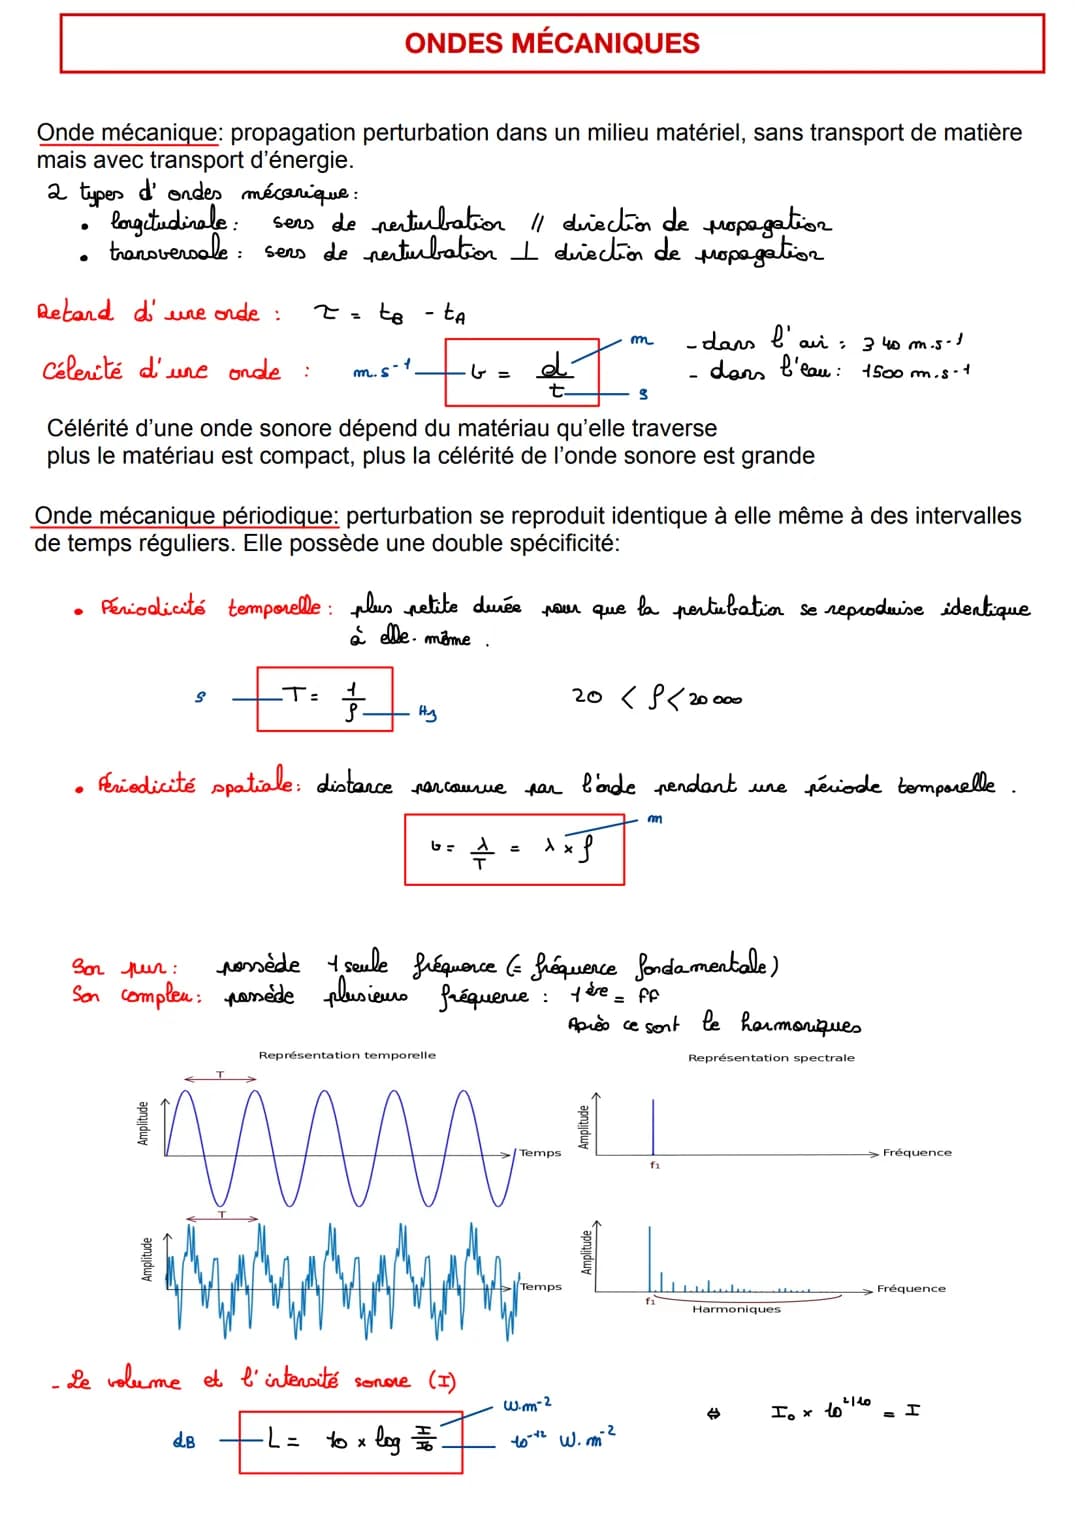 ONDES MÉCANIQUES
Onde mécanique: propagation perturbation dans un milieu matériel, sans transport de matière
mais avec transport d'énergie.
2 types d'ondes mécanique :
• longitudinale : sens de perturbation // direction de propagation
• transversale : sens de perturbation ⊥ direction de propagation
Retard d'une onde : τ = tB - tA
Célérité d'une onde : m.s-1 v = d/t m s
- dans l'air : 340 m.s-1
- dans l'eau : 1500 m.s-1
Célérité d'une onde sonore dépend du matériau qu'elle traverse
plus le matériau est compact, plus la célérité de l'onde sonore est grande
Onde mécanique périodique: perturbation se reproduit identique à elle même à des intervalles
de temps réguliers. Elle possède une double spécificité:
• Périodicité temporelle : plus petite durée pour que la pertubation se reproduise identique
à elle-même .
s T = 1/f Hz 20 < f < 20 000
• Périodicité spatiale : distance parcourue par l'onde pendant une période temporelle .
v = λ/T = λ × f m
Son pur : possède 1 seule fréquence (= fréquence fondamentale)
Son complexe : possède plusieurs fréquence : 1ère = FF
Après ce sont le harmoniques
Représentation temporelle
Représentation spectrale
T
Amplitude
Temps
Amplitude
f1
Fréquence
T
Amplitude
Temps
Amplitude
f1
Harmoniques
Fréquence
- Le volume et l'intensité sonore (I)
dB L = 10 × log I/I0 W.m-2 10-12 W.m-2
⇔ I0 × 10^L/10 = I